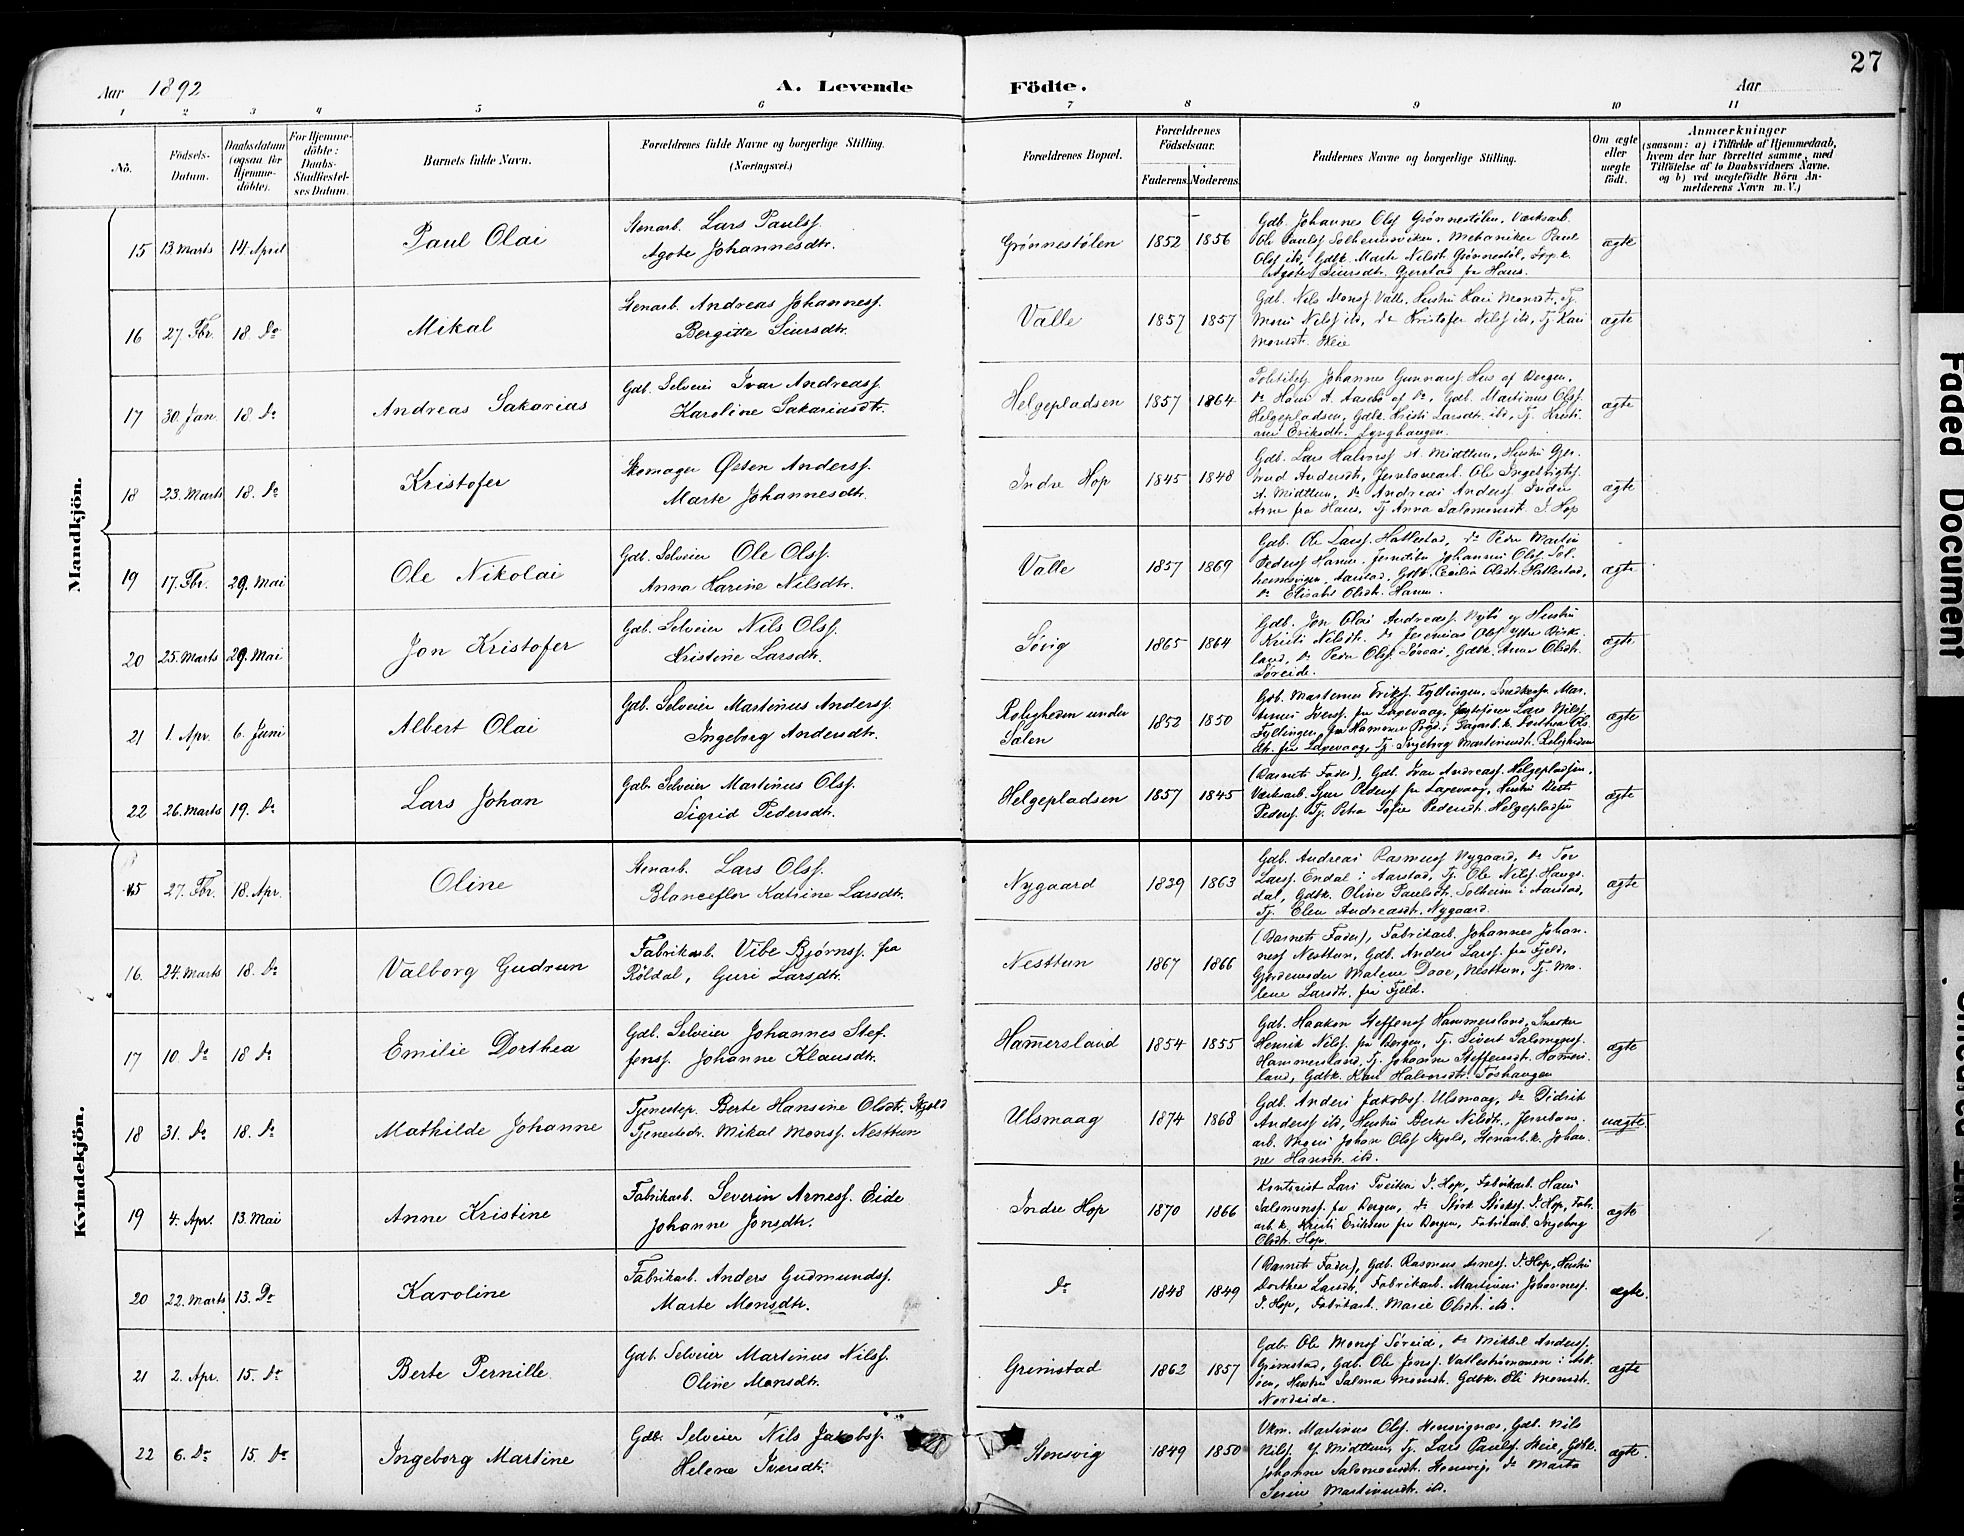 27
Aar 1892 A. Levende Födte. Aar
1 2 3 4 5 6 7 8 9 10 11
No.
Födsels-Datum.
Daabsdatum (ogsaa for Hjemmedöbte).
For Hjemmedöbte: Daabs-Stadfæstelses Datum.
Barnets fulde Navn.
Forældrenes fulde Navne og borgerlige Stilling. (Næringsvei.)
Forældrenes Bopæl.
Forældrenes Födselsaar.
Faderens. Moderens.
Faddernes Navne og borgerlige Stilling.
Om ægte eller uægte födt.
Anmærkninger
(saasom: a) i Tilfælde af Hjemmedaab, hvem der har forrettet samme, med Tilföielse af to Daabsvidners Navne. og b) ved uægtefödte Börn Anmelderens Navn m. V.)
Mandkjön.
15 13. Marts 14 April Paul Olai
Stenarb. Lars Paulss.
Agote Johannesdtr.
Grønnestølen 1852 1856
Gdb. Johannes Olss Grønnestølen, Værksarb.
Ole Paulss Solheimsviken, Mekaniker Paul
Olss ibd, Gdbk. Marte Nilsdt. Grønnestøl, Fpp.k.
Agote Siursdtr. Gjerstad fra Haus.
ægte
16 27. Fbr. 18. Do Mikal
Stenarb. Andreas Johanness.
Bergitte Siursdtr.
Valle 1857 1857
Gdb. Nils Monss Valle, Hustru Kari Monsdt, Tj.
Mons Nilss ibd, Do Kristofer Nilss ibd, Tj. Kari
Monsdt. Skeie
ægte
17 30. Jan. 18. Do Andreas Sakarias
Gdb. Selveier Ivar Andreass.
Karoline Sakariasdtr.
Helgepladsen 1857 1864
Politibetj. Johannes Gunnarss. Hus af Bergen,
Do Hans A. Aasen af Do, Gdb. Martinus Olss.
Helgepladsen, Gdbk. Kristi Larsdt. ibd, Tj. Kristi
ane Eriksdtr. Lynghaugen.
ægte
18 23. Marts 18. Do Kristofer
Skomager Østen Anderss.
Marte Johannesdtr.
Indre Hop 1845 1848
Gdb. Lars Halvorss N. Midttun, Hustru Gjer-
trud Andersdt, Jernbanearb. Ole Ingebrigts.
N. Midttun, Do Andreas Anderss Indre
Arne fra Haus, Tj. Anna Salomonsdt. I. Hop
ægte
19 17. Fbr. 29. Mai Ole Nikolai
Gdb. Selveier Ole Olss.
Anna Karine Nilsdtr.
Valle 1857 1869
Gdb. Ole Larss. Hatlestad, Do Peder Martin
Pederss Hamre, Johannes Olss Sol-
heimsvigen, Aarstad, Gdbk. Cecilia Olsdt. Hatlestad,
Do Elisabet Olsdt. Hamre.
ægte
20 25. Marts 29. Mai Jon Kristofer
Gdb. Selveier Nils Olss.
Kristine Larsdtr.
Søvig 1865 1864
Gdb. Jon Olai Andreass. Nybø og Hustru
Kristi Nilsdt. Do Jeremias Olss Ytre Birke-
land, Do Peder Olss. Søreide, Gdbk. Anna Olsdt.
Søreide.
ægte
21 1. Apr. 6. Juni Albert Olai
Gdb. Selveier Martinus Anderss.
Ingeborg Andersdtr.
Roligheden under
Sælen
1852 1850
Gdb. Martinus Erikss. Fyllingen, Snedkersv. Mar-
tinus Iverss. fra Laxevaag, Lars Nilss.
Fyllingen, fra Hammer Prgd., Gaarb.k. Dorthea Ols
dt. fra Laxevaag, Tj. Ingeborg Martinusdt. Roligheden
ægte
22 26. Marts 19. Do Lars Johan
Gdb. Selveier Martinus Olss.
Sigrid Pedersdtr.
Helgepladsen 1857 1845
(Barnets Fader), Gdb. Ivar Andreass. Helgepladsen,
Værksarb. Sjur Pederss fra Laxevaag, Hustru Berte
Pederss. Tj. Petra Sofie Pedersdt. Helgepladsen
ægte
Kvindekjön.
15 27. Fbr. 18. Apr. Oline
Stenarb. Lars Olss.
Blanceflor Katrine Larsdtr.
Nygaard 1839 1863
Gdb. Andreas Rasmuss Nygaard, Do Tor
Larss. Endal i Aarstad, Tj. Ole Nilss. Haugs-
dal, Gdbk. Oline Paulsdt. Solheim i Aarstad,
Tj. Elen Andreasdt. Nygaard.
ægte
16. 24. Marts 18. Do Valborg Gudrun
Fabrikarb. Vibe Bjørnss. fra
Röldal, Guri Larsdtr.
Nesttun 1867 1866
(Barnets Fader), Fabrikarb. Johannes Johan-
ness Nesttun, Gdb. Anders Larss. fra Fjeld,
Gjordemoder Malene Daae, Nesttun, Tj. Ma-
lene Larsdtr. fra Fjeld.
17 10. Do 18 Do Emilie Dorthea
Gdb. Selveier Johannes Stef-
fenss. Johanne Klausdtr.
Hammersland 1854 1855
Gdb. Haakon Steffenss Hammersland, Snedker
Henrik Nilss. fra Bergen, Tj. Sivert Salomonss.
Hammersland, Tj. Johanne Steffensdt. Hammers-
land, Gdbk. Kari Halvorsdt. Toshaugen
ægte
18 31. Do 18. Do Mathilde Johanne
Tjenestep. Berte Hansine Olsdt. Skjold
Tjenestedr. Mikal Monss. Nesttun
Ulsmaag 1874 1868
Gdb. Anders Jakobss. Ulsmaag, Do Didrik
Anderss ibd, Hustru Berte Nilsdt, Jernban-
arb. Mons Johan Olss Skjold, Stenarb.k. Johan-
ne Hansdt. ibd.
uægte
19 4. Apr. 13. Mai Anne Kristine
Fabrikarb. Severin Arness. Eide
Johanne Jonsdtr.
Indre Hop 1870 1866
Kontorist Lars Tveiten I. Hop, Fabrikarb. Hans
Salomonss. fra Bergen, Do Störk Störkss. I. Hop, Fabr.
arb.k. Kristi Eriksen fra Bergen, Fabrikarb. Ingeborg
Olsdt. Hop.
ægte
20 22. Marts 13. Do Karoline
Fabrikarb. Anders Gudmundss.
Marte Monsdtr.
Do 1848 1849
(Barnets Fader), Gdb. Rasmus Arness. I. Hop, Hustru
Dorthea Larsdt. Fabrikarb. Martinus Johanness.
I. Hop, Fabrikarb. Marie Olsdt. ibd.
ægte.
21 2. Apr. 15. Do Berte Pernille
Gdb. Selveier Martinus Nilss.
Oline Monsdtr.
Grimstad 1862 1857
Gdb. Ole Monss Søreide, Do Mikkel Anderss.
Grimstad, Gdb. Ole Jonss. Vatlestrømmen i Ask-
öen, Hustru Salma Monsdt. Gdbk. Eli Monsdt.
Nordeide.
ægte
22 6. Do 15. Do Ingeborg Martine
Gdb. Selveier Nils Jakobss.
Helene Iversdtr.
Stensvig 1849 1850
Vkm. Martinus Olss. Gdb. Nils
Nilss. Y. Midttun, Tj. Lars Paulss. Skeie, Gdbk.
Johanne Salomonsdt. Stensvig, Do Marta
Serine Martinusdt. ibd.
ægte.
Faded Document